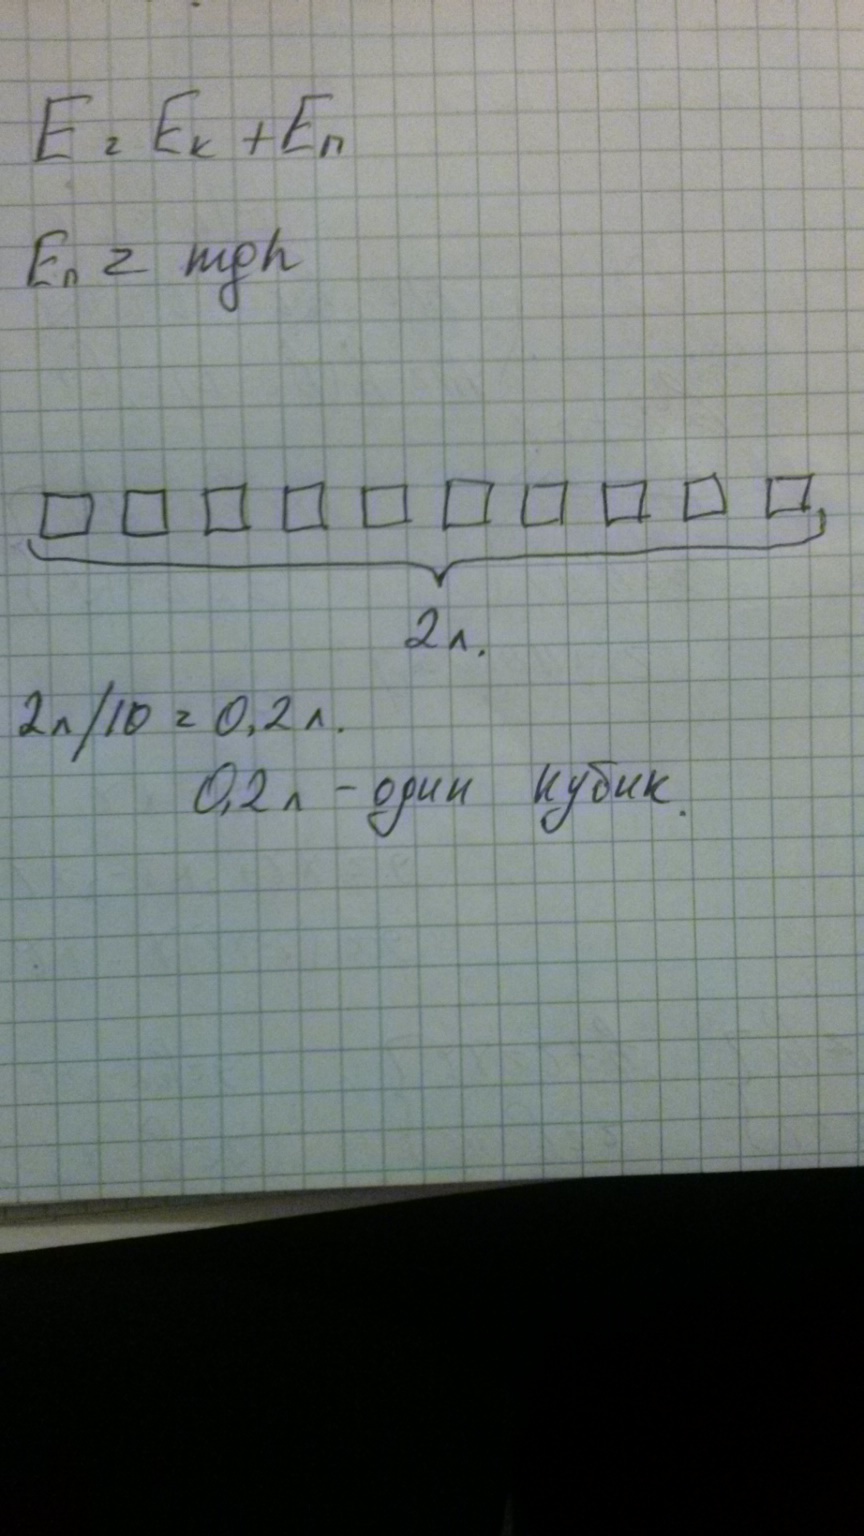 E = Eк + Eп
Eп = mgh
2л.
2л/10 = 0,2л.
0,2л - один кубик.